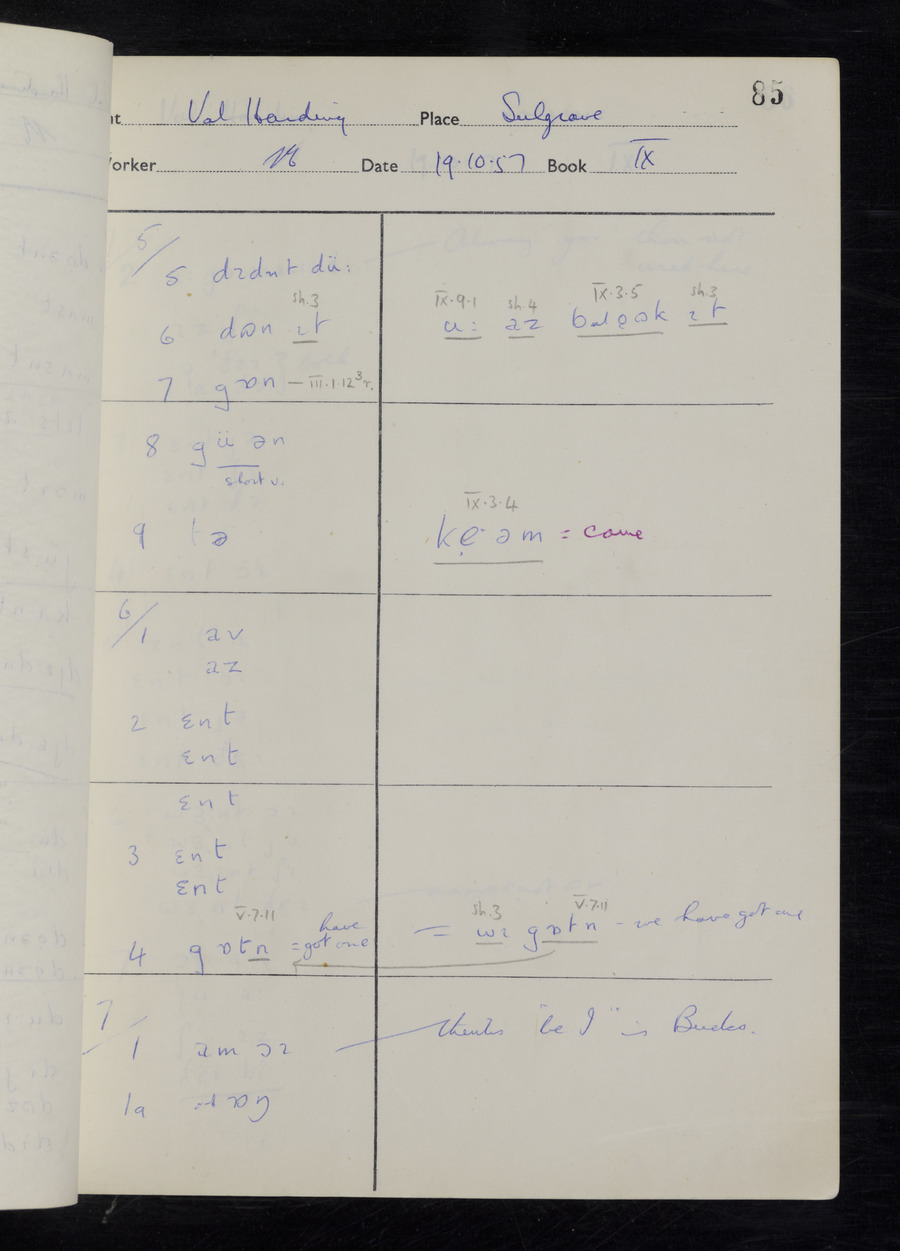 85
Val Harding Place Sulgrave
orker Date 19.10.57 Book IX
5/
5 dɪdnt dü:
sh.3 IX.9.1 sh.4 IX.3.5 sh.3
6 dɒn ɪt u: əz ɪt
7 gɒn – III.1.12³r.
8 gü ən
short v.
IX.3.4
9 tə kẹəm = came
6/
1 əv
əz
2 ɛnt
ɛnt
ɛnt
3 ɛnt
ɛnt
V.7.11 have sh.3 V.7.11
4 gɒtn = got one = wɪ gɒtn – we have got one
7/
1 am ɔɪ thinks "be I" is Bucks.
1a